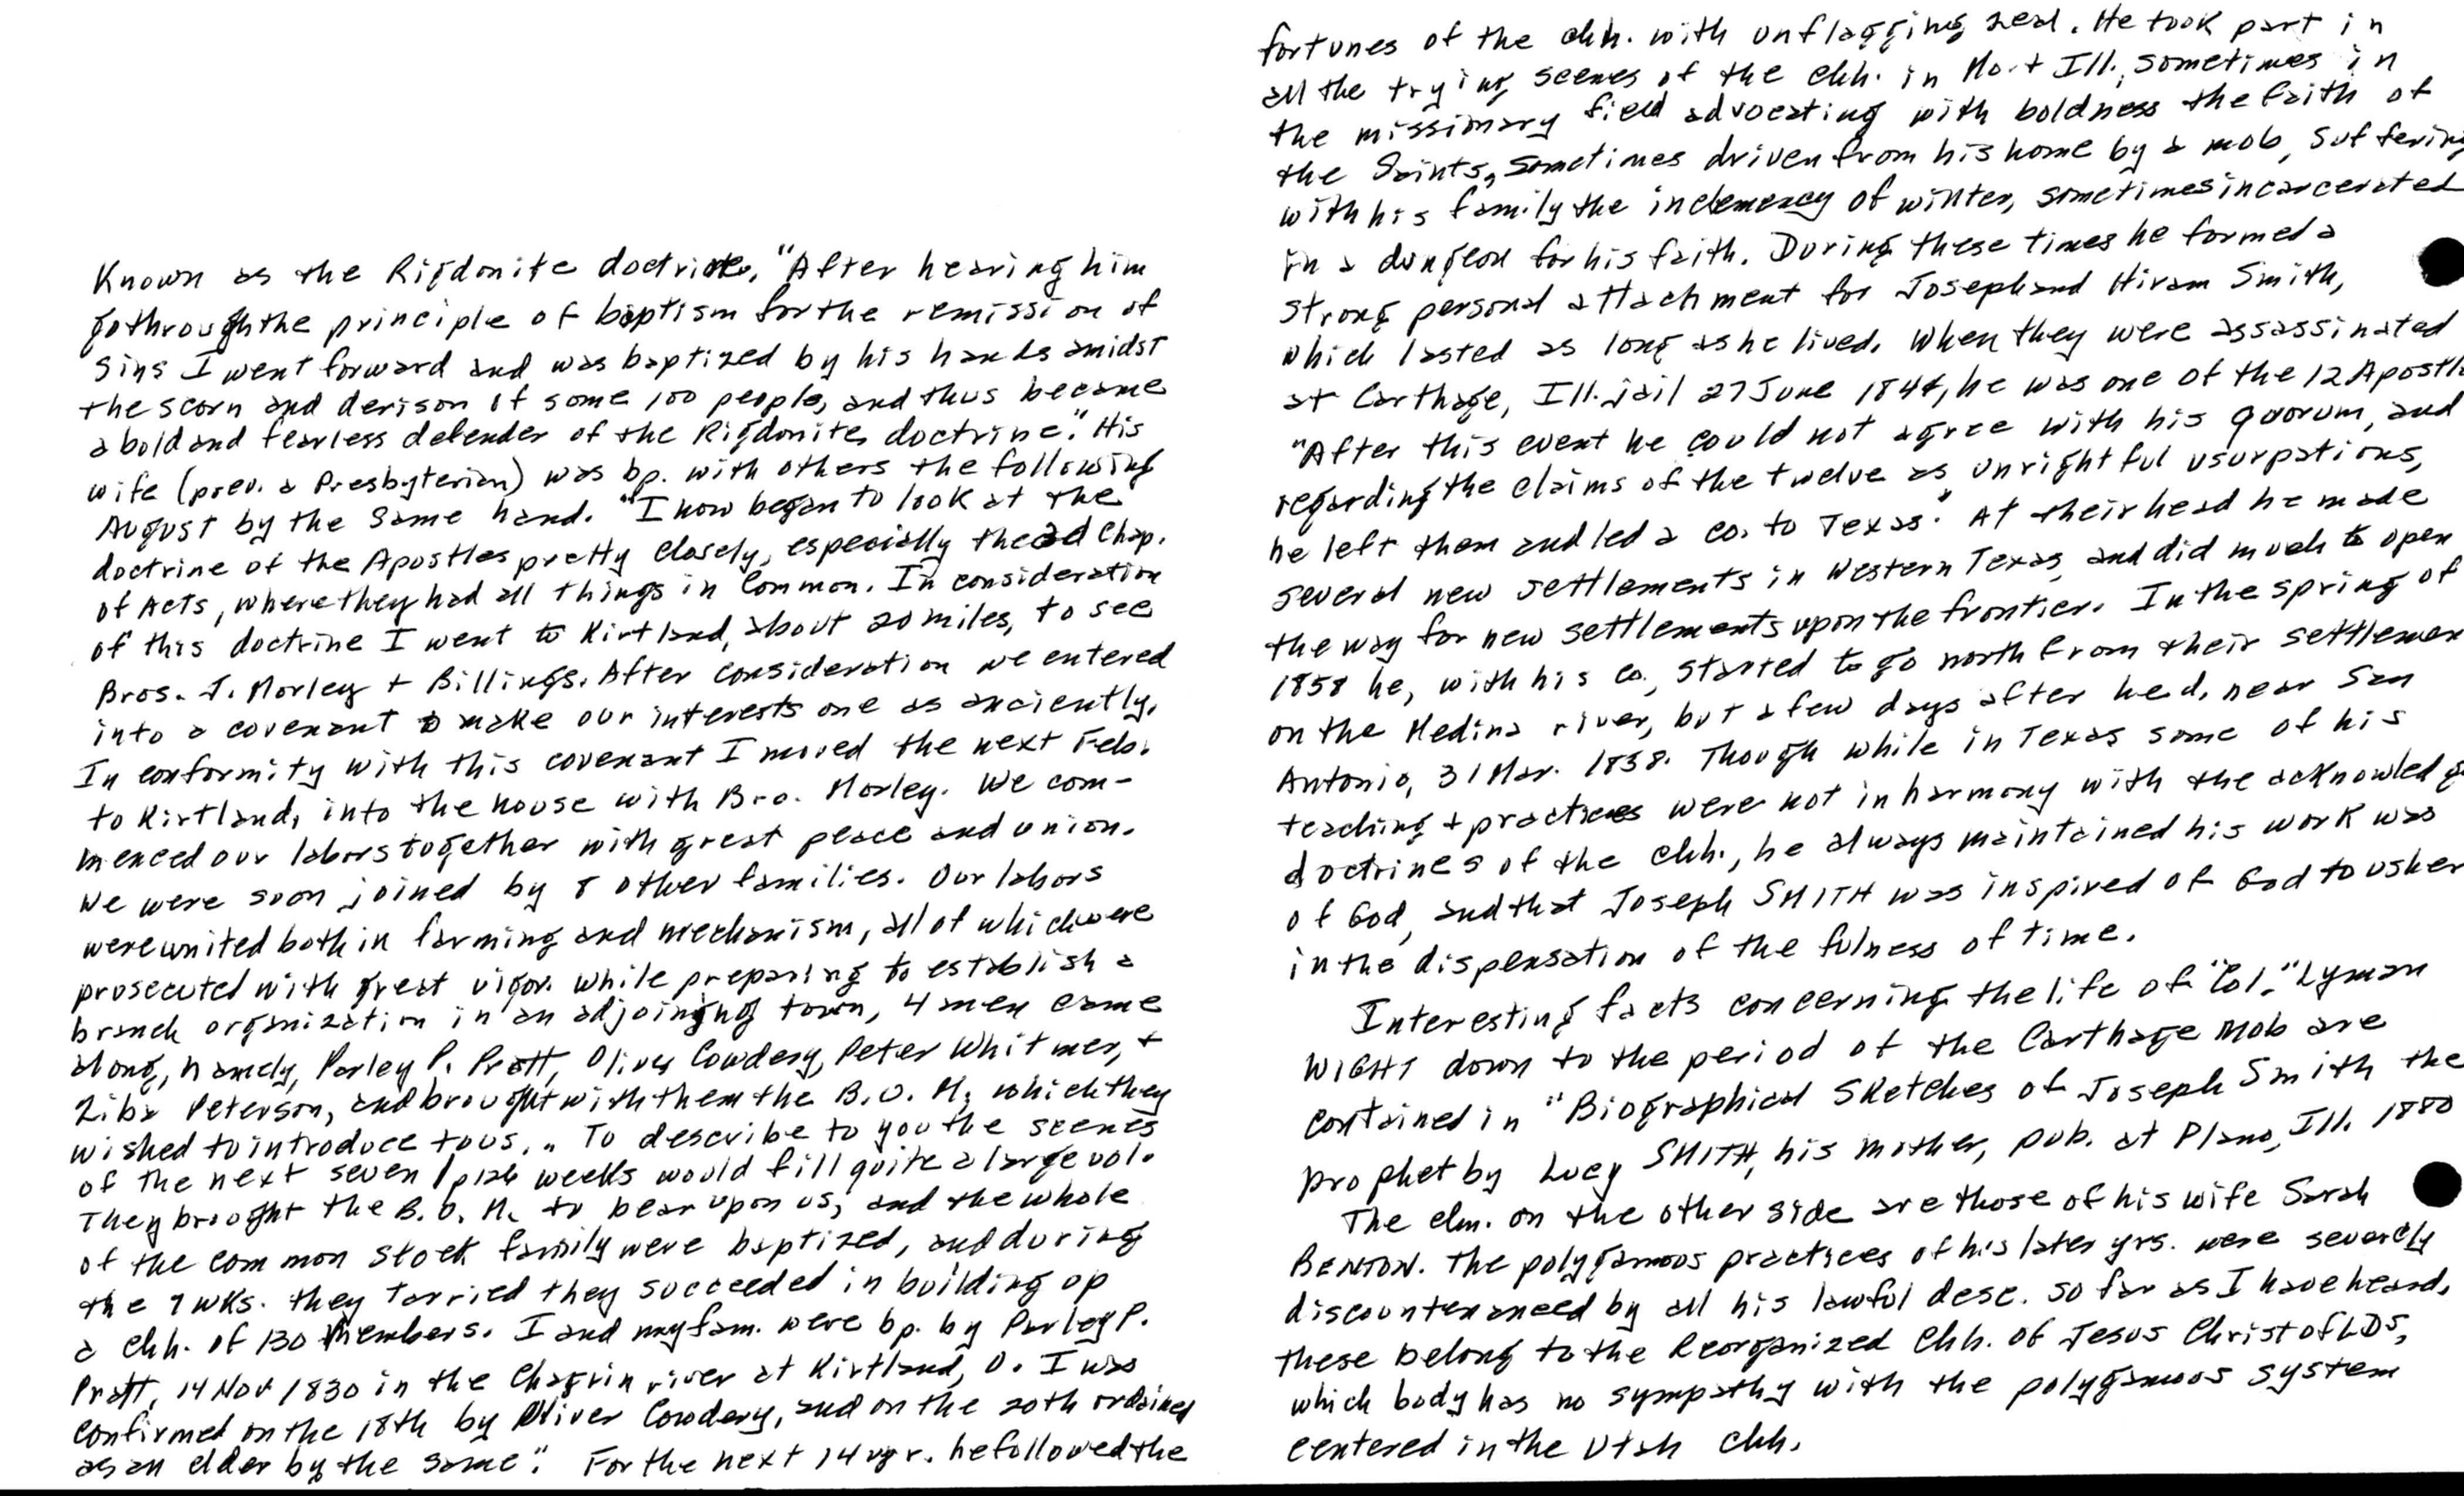 Known as the Rigdonite doctrine. "After hearing him
go through the principle of baptism for the remission of
Sins I went forward and was baptized by his hands amidst
the scorn and derison of some 100 people, and thus became
a bold and fearless defender of the Rigdonite doctrine." His
wife (prev. a Presbyterian) was bp. with others the following
August by the same hand. "I now began to look at the
doctrine of the Apostles pretty closely, especially the 2d Chap.
of Acts, where they had all things in Common. In consideration
of this doctrine I went to Kirtland, about 20 miles, to see
Bros. I. Morley + Billings. After consideration we entered
into a covenant to make our interests one as anciently.
In conformity with this covenant I moved the next Feb.
to Kirtland, into the house with Bro. Morley. We com-
menced our labors together with great peace and union.
We were soon joined by 8 other families. Our labors
were united both in farming and mechanism, all of which were
prosecuted with great vigor. While preparing to establish a
branch organization in an adjoining town, 4 men came
along, namely, Parley P. Pratt, Oliver Cowdery, Peter Whitmer, +
Ziba Peterson, and brought with them the B. O. M., which they
wished to introduce to us. " To describe to you the scenes
of the next seven weeks would fill quite a large vol.
They brought the B. O. M. to bear upon us, and the whole
of the common stock family were baptized, and during
the 7 wks. they tarried they succeeded in building up
a chh. of 130 members. I and my fam. were bp. by Parley P.
Pratt, 14 Nov 1830 in the Chagrin river at Kirtland, O. I was
confirmed on the 18th by Oliver Cowdery, and on the 20th ordained
as an elder by the same." For the next 14 yr. he followed the
fortunes of the chh. with unflagging zeal. He took part in
all the trying scenes of the chh. in Mo. + Ill., sometimes in
the missionary field advocating with boldness the faith of
the Saints, sometimes driven from his home by a mob, suffering
with his family the inclemency of winter, sometimes incarcerated
in a dungeon for his faith. During these times he formed a
strong personal attachment for Joseph and Hiram Smith,
which lasted as long as he lived. When they were assassinated
at Carthage, Ill. jail 27 June 1844, he was one of the 12 Apostl
"After this event he could not agree with his quorum, and
regarding the claims of the twelve as unrightful usurpations,
he left them and led a co. to Texas." At their head he made
several new settlements in Western Texas, and did much to open
the way for new settlements upon the frontier. In the spring of
1858 he, with his co., started to go north from their settlemen
on the Medina river, but a few days after he d. near San
Antonio, 31 Mar. 1858. Though while in Texas some of his
teaching + practices were not in harmony with the acknowledg
doctrines of the chh., he always maintained his work was
of God, and that Joseph SMITH was inspired of God to usher
in the dispensation of the fulness of time.
Interesting facts concerning the life of "Col." Lyman
WIGHT down to the period of the Carthage Mob are
contained in "Biographical Sketches of Joseph Smith the
prophet by Lucy SMITH, his mother, pub. at Plano, Ill. 1880
The chn. on the other side are those of his wife Sarah
BENTON. The polygamous practices of his later yrs. were severely
discountenanced by all his lawful desc. so far as I have heard.
these belong to the Reorganized Chh. of Jesus Christ of LDS,
which body has no sympathy with the polygamous system
centered in the Utah chh.